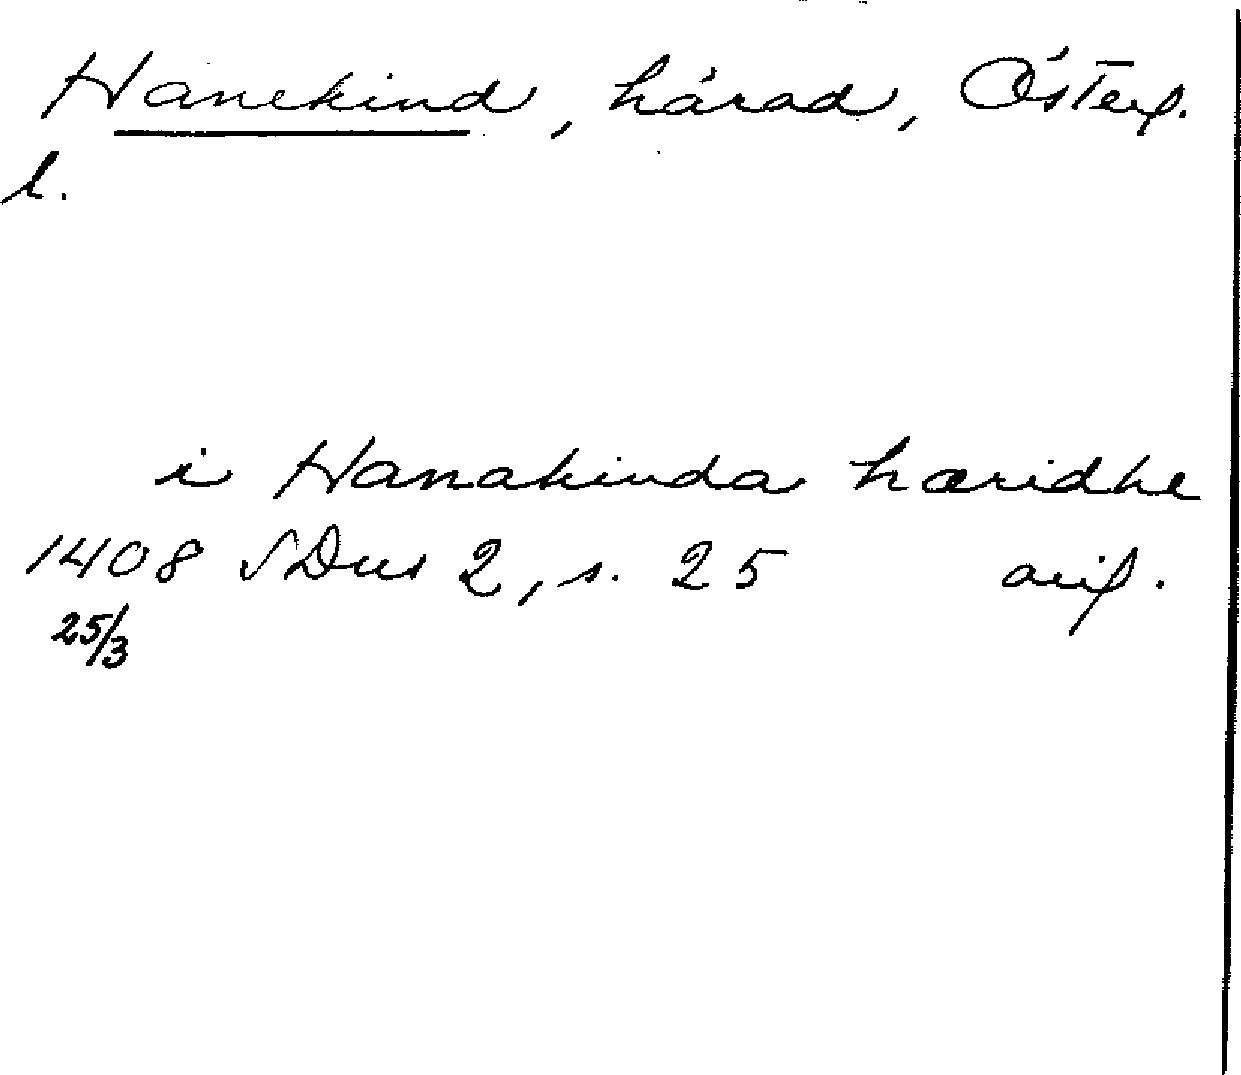 Hanekind, härad, Österg.
l.
i Hanakinda hæridhe
1408 SDns 2, s. 25 avf.
25/3